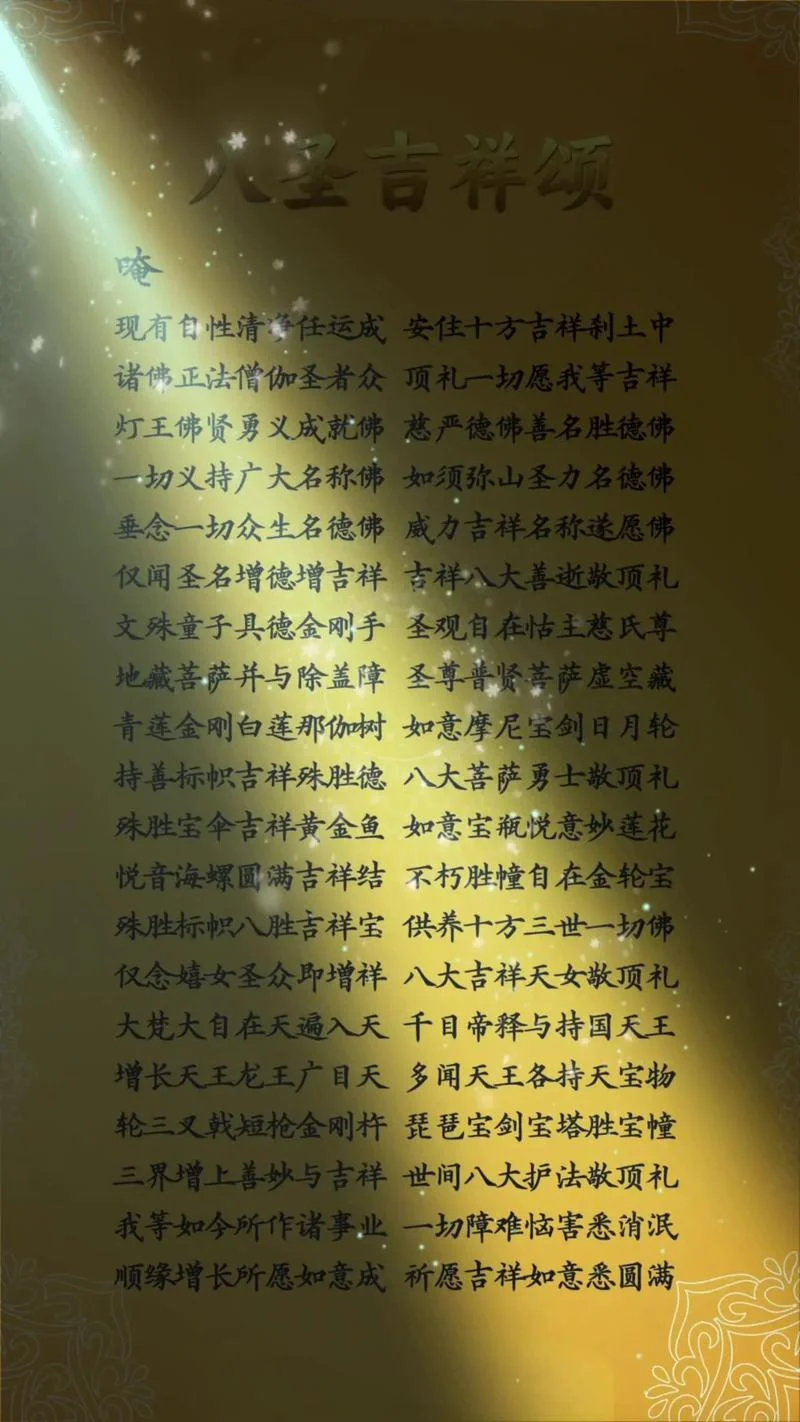 八圣吉祥颂
唵
现有自性清净任运成 安住十方吉祥刹土中
诸佛正法僧伽圣者众 顶礼一切愿我等吉祥
灯王佛贤勇义成就佛 慈严德佛善名胜德佛
一切义持广大名称佛 如须弥山圣力名德佛
垂念一切众生名德佛 威力吉祥名称遂愿佛
仅闻圣名增德增吉祥 吉祥八大善逝敬顶礼
文殊童子具德金刚手 圣观自在怙主慈氏尊
地藏菩萨并与除盖障 圣尊普贤菩萨虚空藏
青莲金刚白莲那伽树 如意摩尼宝剑日月轮
持善标帜吉祥殊胜德 八大菩萨勇士敬顶礼
殊胜宝伞吉祥黄金鱼 如意宝瓶悦意妙莲花
悦音海螺圆满吉祥结 不朽胜幢自在金轮宝
殊胜标帜八胜吉祥宝 供养十方三世一切佛
仅念嬉女圣众即增祥 八大吉祥天女敬顶礼
大梵大自在天遍入天 千目帝释与持国天王
增长天王龙王广目天 多闻天王各持天宝物
轮三叉戟短枪金刚杵 琵琶宝剑宝塔胜宝幢
三界增上善妙与吉祥 世间八大护法敬顶礼
我等如今所作诸事业 一切障难恼害悉消泯
顺缘增长所愿如意成 祈愿吉祥如意悉圆满